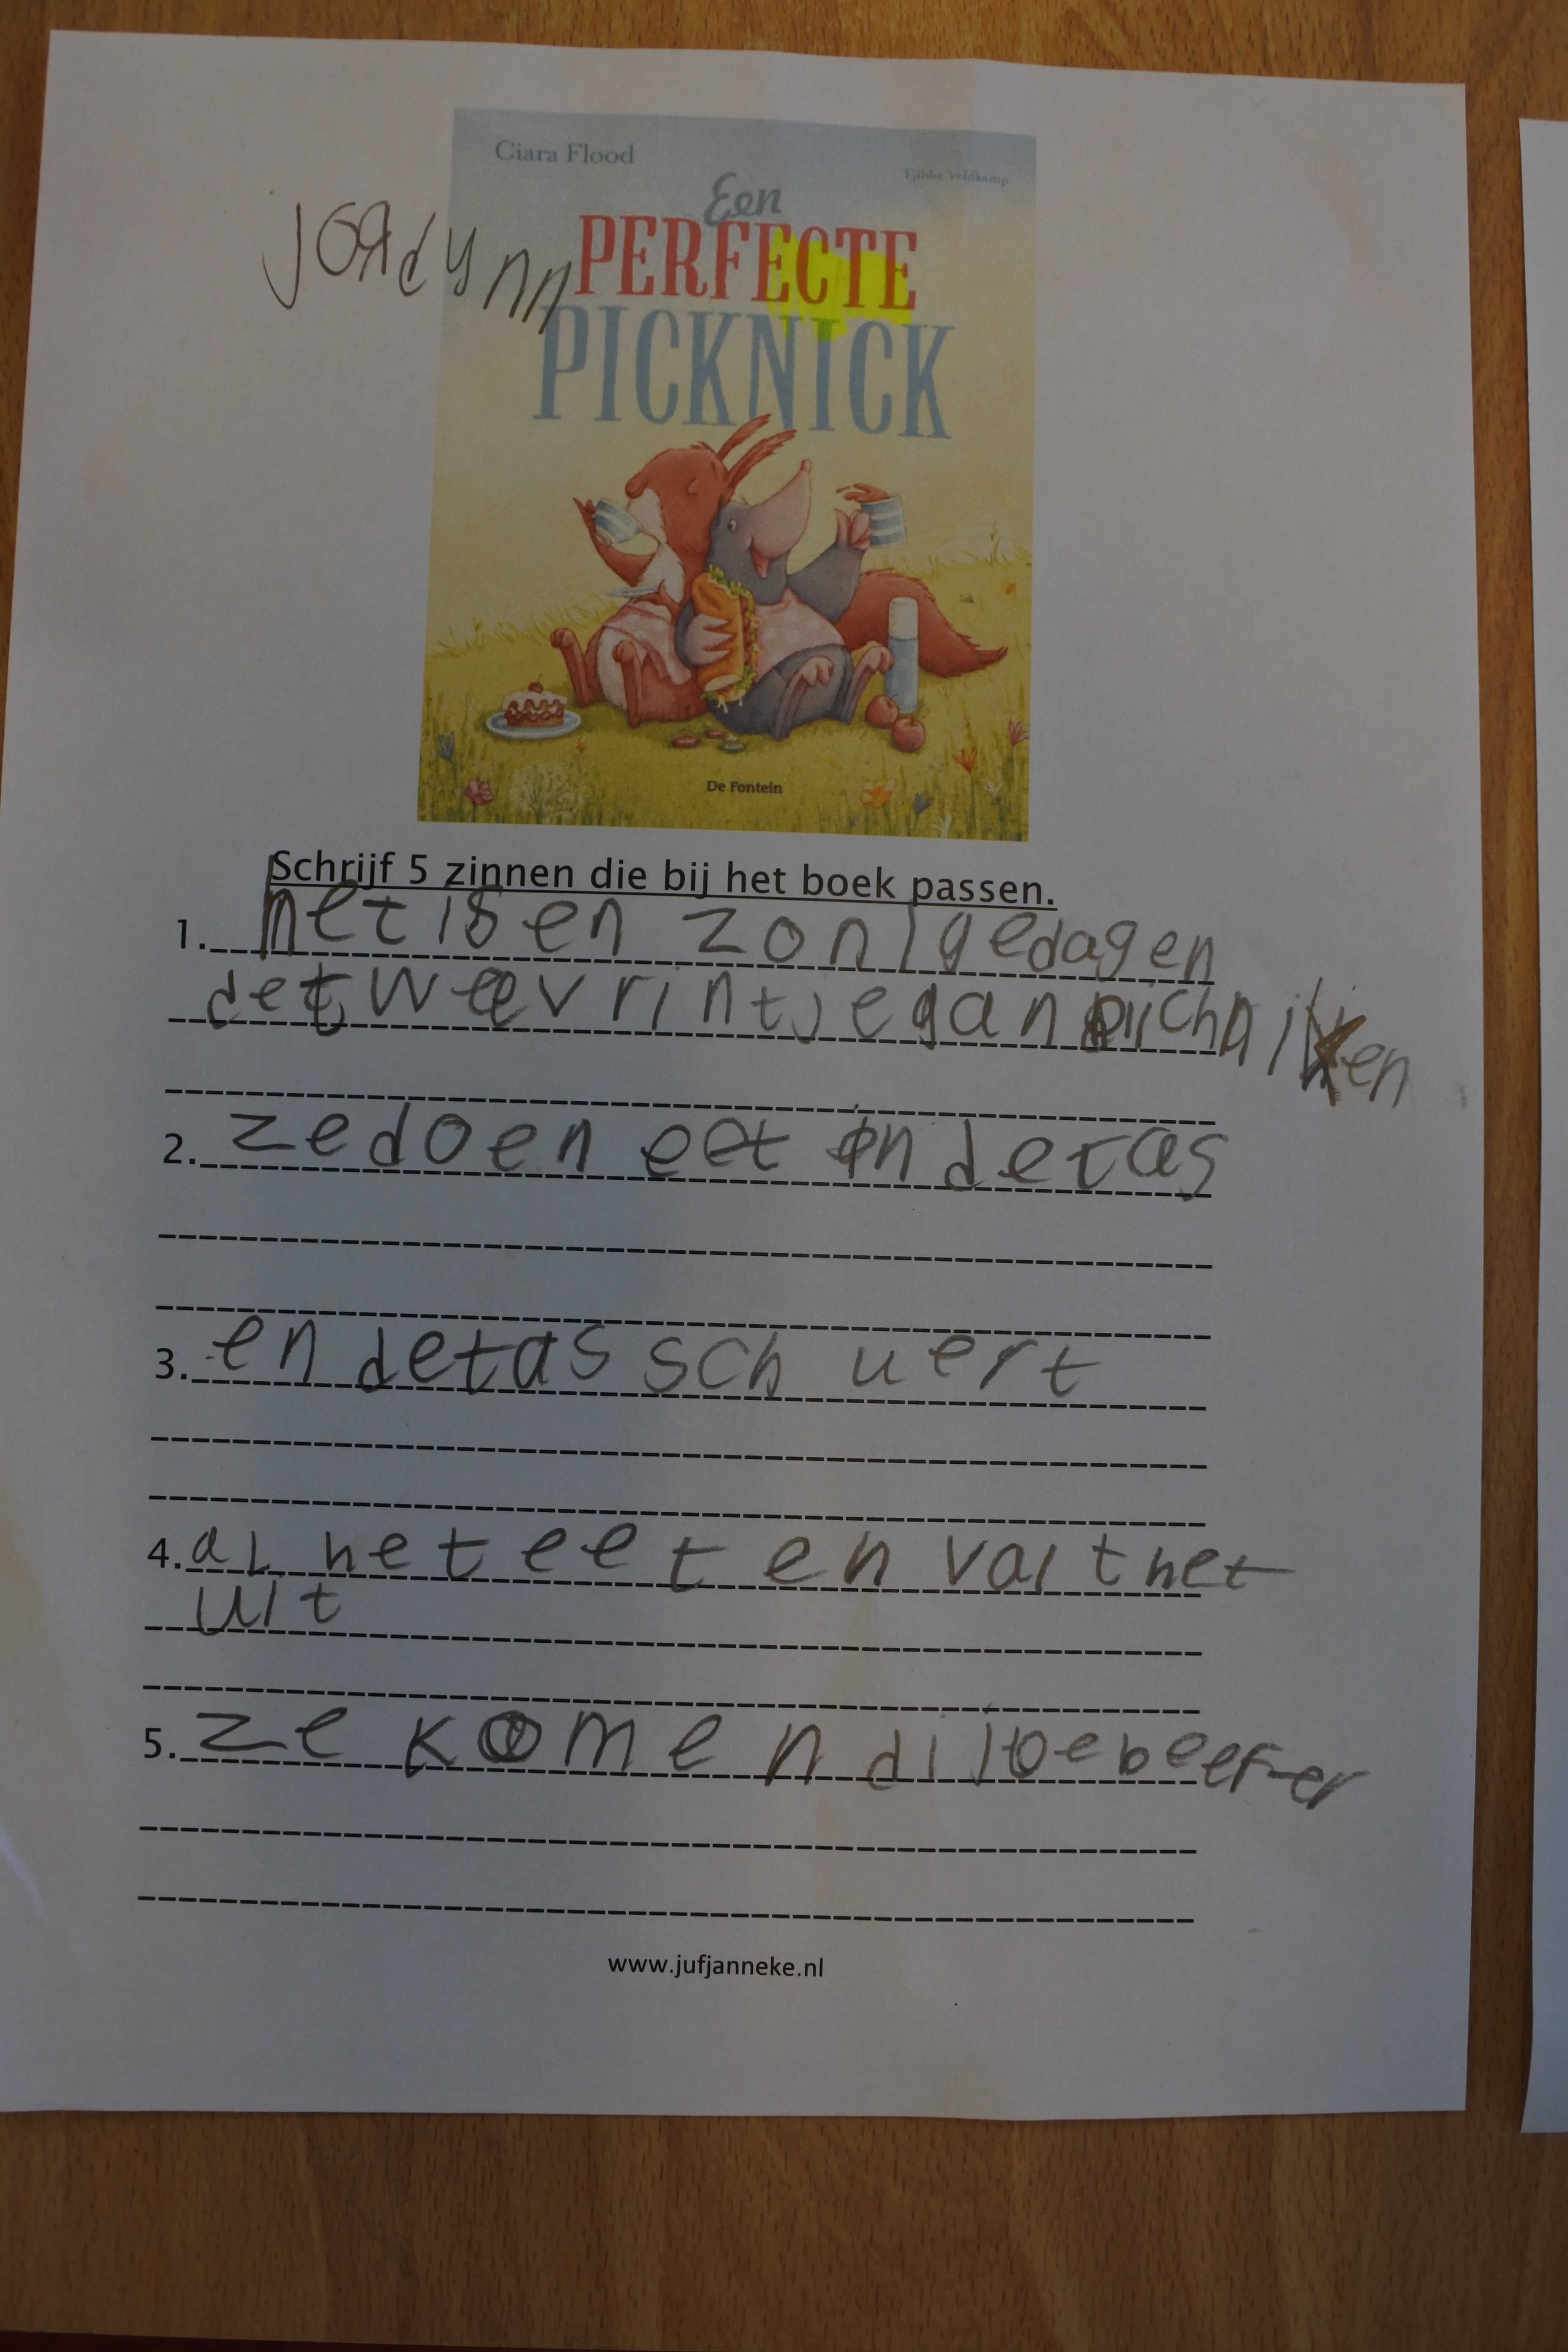 Ciara Flood
Tjibbe Veldkamp
Een
PERFECTE
PICKNICK
jordynn
De Fontein
Schrijf 5 zinnen die bij het boek passen.
1. het is en zonige dag en
de twee vrintje gan pichniken
2. ze doen eet in de tas
3. en de tas schuert
4. al het eeten valt het
uit
5. ze komen dij
www.jufjanneke.nl